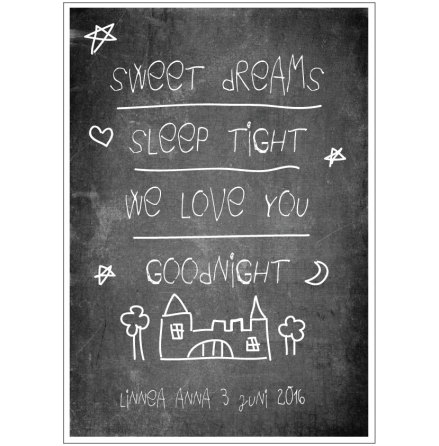 SWEET dREAMS
SLEEP TiGHT
WE LOVE YOU
GOOdNiGHT
LiNNEA ANNA 3 JUNi 2016